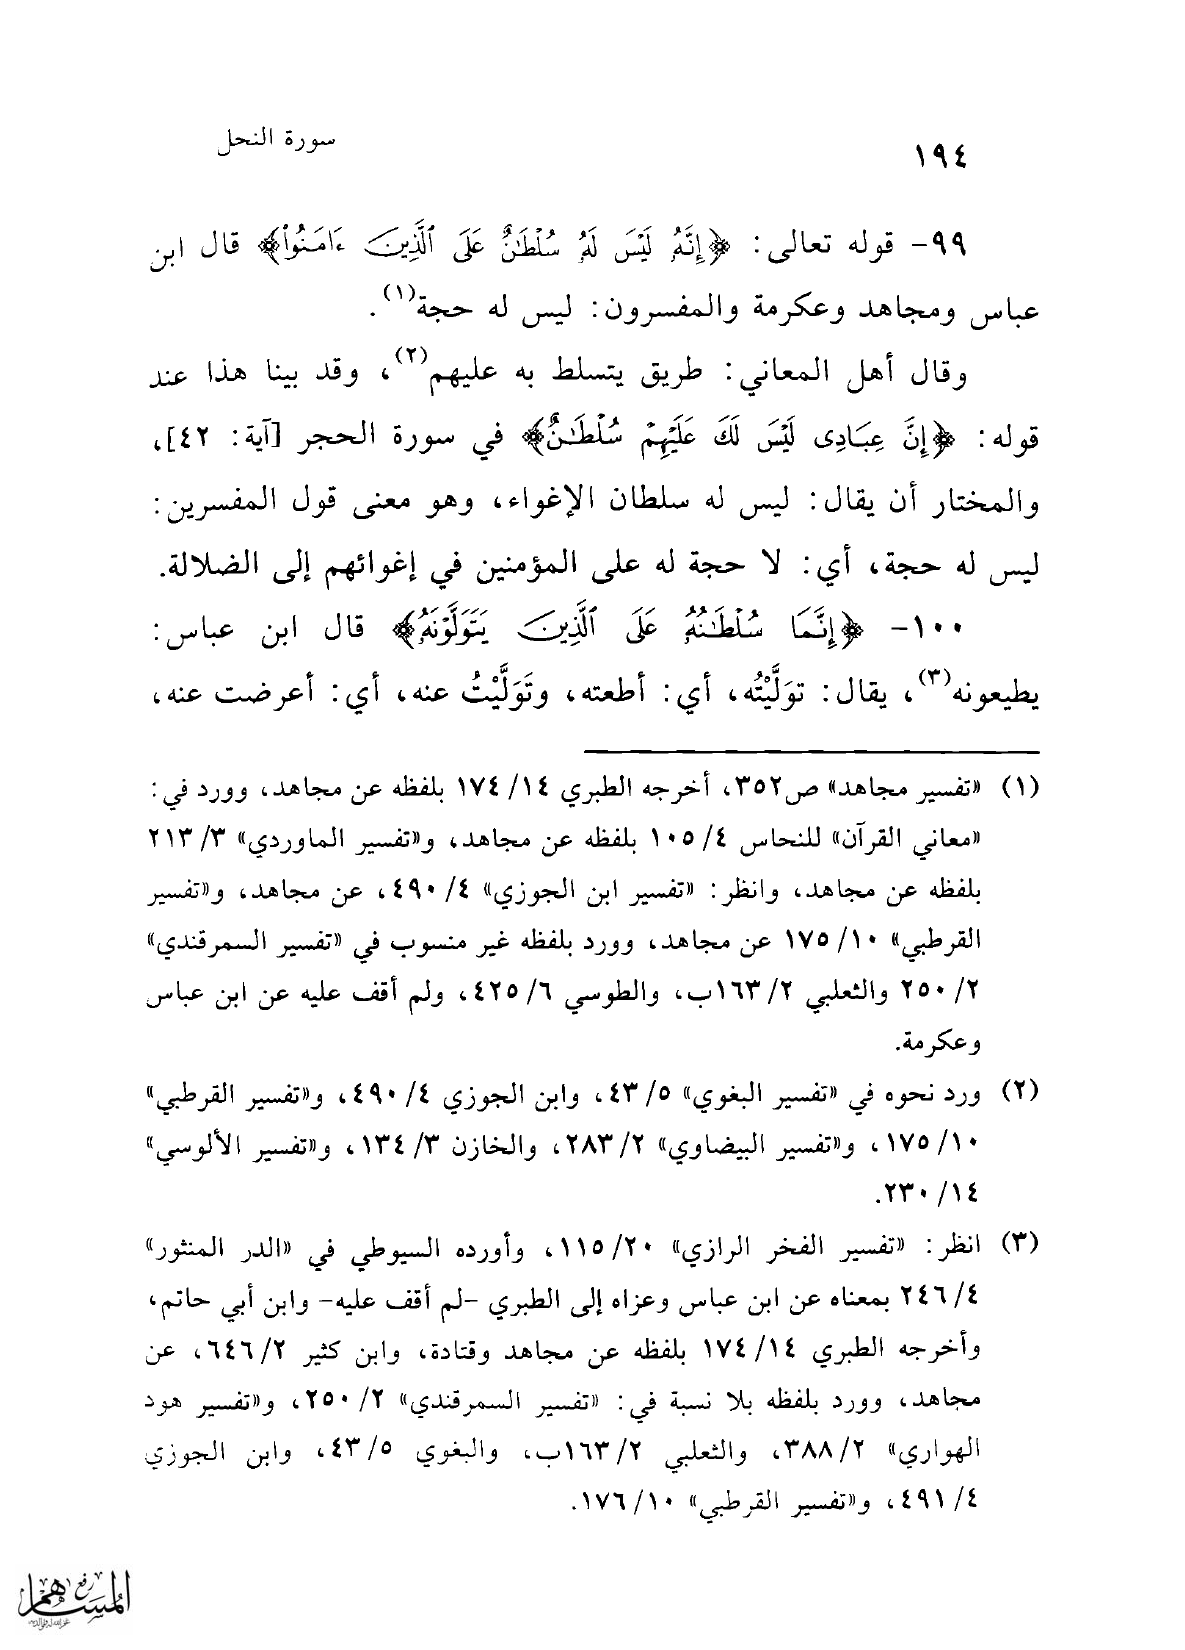 ١٩٤ سورة النحل
٩٩- قوله تعالى: ﴿إِنَّهُۥ لَيْسَ لَهُۥ سُلْطَـٰنٌ عَلَى ٱلَّذِينَ ءَامَنُوا۟﴾ قال ابن
عباس ومجاهد وعكرمة والمفسرون: ليس له حجة(١).
وقال أهل المعاني: طريق يتسلط به عليهم(٢)، وقد بينا هذا عند
قوله: ﴿إِنَّ عِبَادِى لَيْسَ لَكَ عَلَيْهِمْ سُلْطَـٰنٌ﴾ في سورة الحجر [آية: ٤٢]،
والمختار أن يقال: ليس له سلطان الإغواء، وهو معنى قول المفسرين:
ليس له حجة، أي: لا حجة له على المؤمنين في إغوائهم إلى الضلالة.
١٠٠- ﴿إِنَّمَا سُلْطَـٰنُهُۥ عَلَى ٱلَّذِينَ يَتَوَلَّوْنَهُۥ﴾ قال ابن عباس:
يطيعونه(٣)، يقال: توَلَّيْتُه، أي: أطعته، وتَوَلَّيْتُ عنه، أي: أعرضت عنه،
(١) «تفسير مجاهد» ص٣٥٢، أخرجه الطبري ١٤/ ١٧٤ بلفظه عن مجاهد، وورد في:
«معاني القرآن» للنحاس ٤/ ١٠٥ بلفظه عن مجاهد، و«تفسير الماوردي» ٣/ ٢١٣
بلفظه عن مجاهد، وانظر: «تفسير ابن الجوزي» ٤/ ٤٩٠، عن مجاهد، و«تفسير
القرطبي» ١٠/ ١٧٥ عن مجاهد، وورد بلفظه غير منسوب في «تفسير السمرقندي»
٢/ ٢٥٠ والثعلبي ٢/ ١٦٣ب، والطوسي ٦/ ٤٢٥، ولم أقف عليه عن ابن عباس
وعكرمة.
(٢) ورد نحوه في «تفسير البغوي» ٥/ ٤٣، وابن الجوزي ٤/ ٤٩٠، و«تفسير القرطبي»
١٠/ ١٧٥، و«تفسير البيضاوي» ٢/ ٢٨٣، والخازن ٣/ ١٣٤، و«تفسير الألوسي»
١٤/ ٢٣٠.
(٣) انظر: «تفسير الفخر الرازي» ٢٠/ ١١٥، وأورده السيوطي في «الدر المنثور»
٤/ ٢٤٦ بمعناه عن ابن عباس وعزاه إلى الطبري -لم أقف عليه- وابن أبي حاتم،
وأخرجه الطبري ١٤/ ١٧٤ بلفظه عن مجاهد وقتادة، وابن كثير ٢/ ٦٤٦، عن
مجاهد، وورد بلفظه بلا نسبة في: «تفسير السمرقندي» ٢/ ٢٥٠، و«تفسير هود
الهواري» ٢/ ٣٨٨، والثعلبي ٢/ ١٦٣ب، والبغوي ٥/ ٤٣، وابن الجوزي
٤/ ٤٩١، و«تفسير القرطبي» ١٠/ ١٧٦.